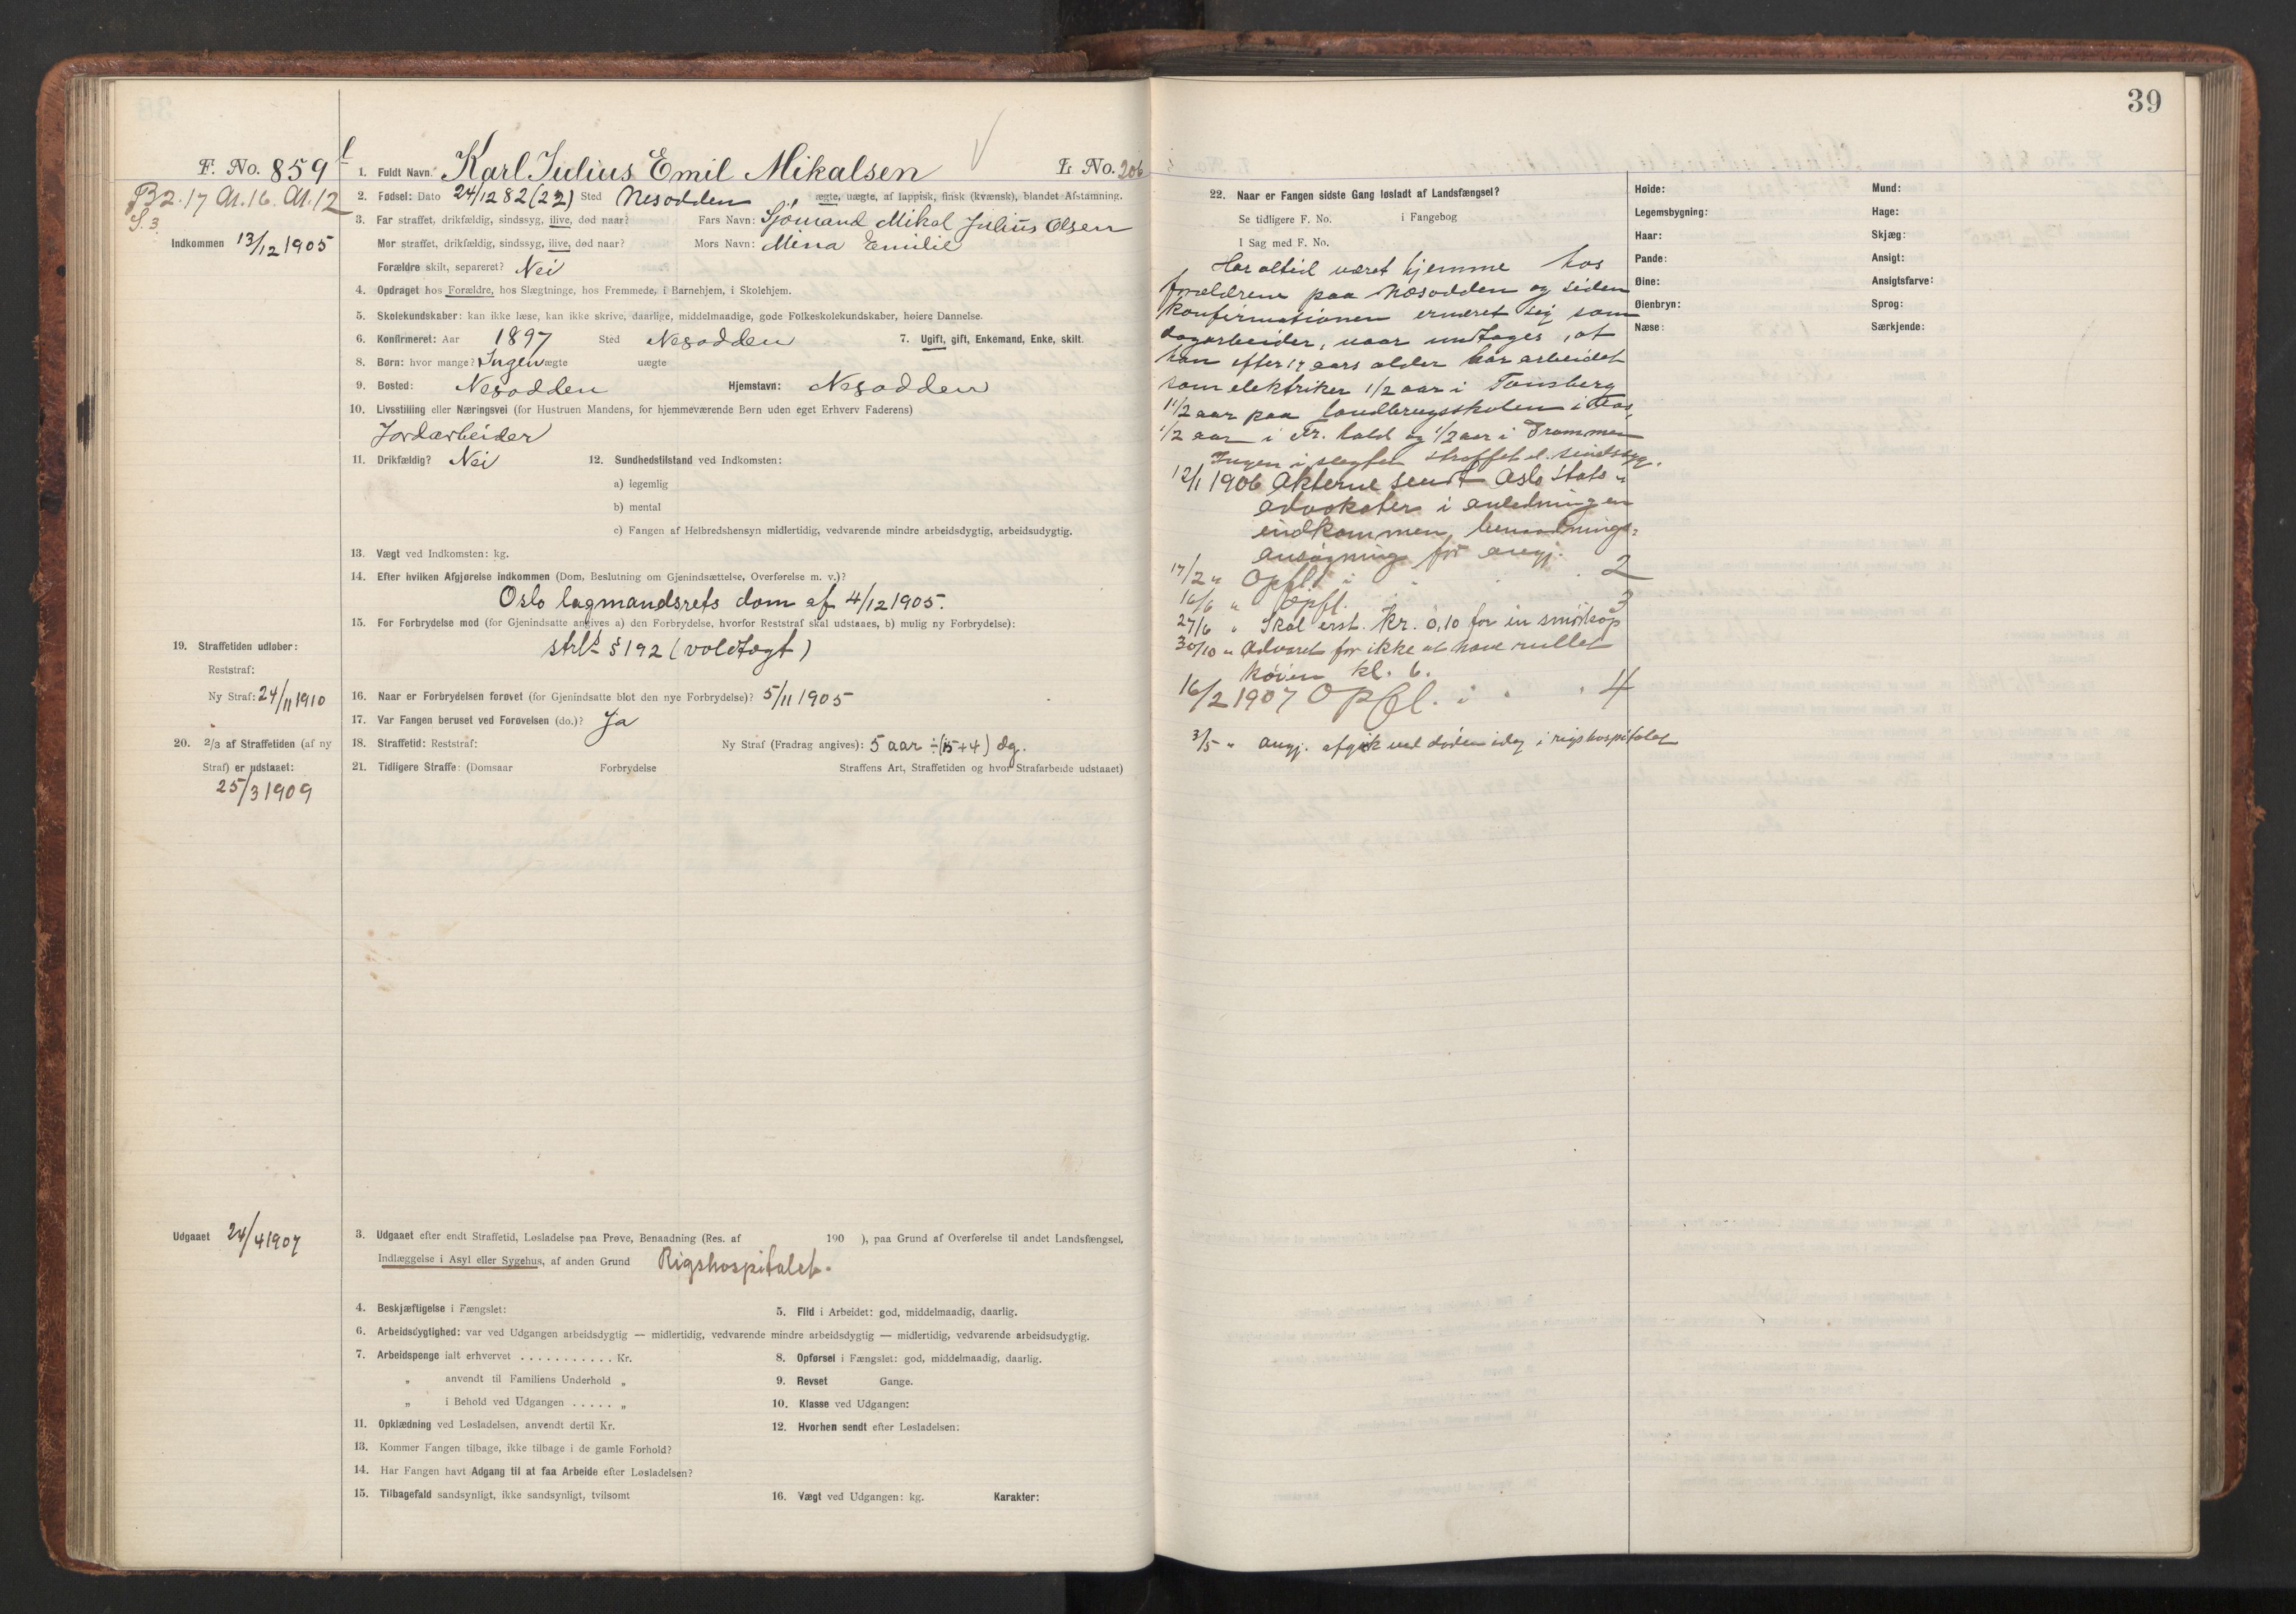 39
F. No. 859
1. Fuldt Navn. Karl Julius Emil Mikalsen L. No. 206
B2.17 A1.16. A1.12
S. 3.
2. Fødsel: Dato 24/12 82 (22) Sted Nesodden ægte, uægte, af lappisk, finsk (kvænsk), blandet Afstamning.
3. Far straffet, drikfældig, sindssyg, ilive, død naar? Fars Navn: Sjömand Mikal Julius Olsen
Indkommen 13/12 1905
Mor straffet, drikfældig, sindssyg, ilive, død naar? Mors Navn: Mina Emilie
Forældre skilt, separeret? Nei
4. Opdraget hos Forældre, hos Slægtninge, hos Fremmede, i Barnehjem, i Skolehjem.
5. Skolekundskaber: kan ikke læse, kan ikke skrive, daarlige, middelmaadige, gode Folkeskolekundskaber, høiere Dannelse.
6. Konfirmeret: Aar 1897 Sted Nesodden 7. Ugift, gift, Enkemand, Enke, skilt.
8. Børn: hvor mange? Ingen ægte uægte
9. Bosted: Nesodden Hjemstavn: Nesodden
10. Livsstilling eller Næringsvei (for Hustruen Mandens, for hjemmeværende Børn uden eget Erhverv Faderens)
Jordarbeider
11. Drikfældig? Nei 12. Sundhedstilstand ved Indkomsten:
a) legemlig
b) mental
c) Fangen af Helbredshensyn midlertidig, vedvarende mindre arbeidsdygtig, arbeidsudygtig.
13. Vægt ved Indkomsten: kg.
14. Efter hvilken Afgjørelse indkommen (Dom, Beslutning om Gjenindsættelse, Overførelse m. v.)?
Oslo lagmandsrets dom af 4/12 1905.
15. For Forbrydelse mod (for Gjenindsatte angives a) den Forbrydelse, hvorfor Reststraf skal udstaaes, b) mulig ny Forbrydelse):
strl. § 192 (voldtægt)
19. Straffetiden udløber:
Reststraf:
Ny Straf: 24/11 1910
16. Naar er Forbrydelsen forøvet (for Gjenindsatte blot den nye Forbrydelse)? 5/11 1905
17. Var Fangen beruset ved Forøvelsen (do.)? Ja
20. 2/3 af Straffetiden (af ny
Straf) er udstaaet:
25/3 1909
18. Straffetid: Reststraf: Ny Straf (Fradrag angives): 5 aar ÷ (15+4) dg.
21. Tidligere Straffe: (Domsaar Forbrydelse Straffens Art, Straffetiden og hvor Strafarbeide udstaaet)
Udgaaet 24/4 1907
3. Udgaaet efter endt Straffetid, Løsladelse paa Prøve, Benaadning (Res. af 190 ), paa Grund af Overførelse til andet Landsfængsel,
Indlæggelse i Asyl eller Sygehus, af anden Grund Rigshospitalet.
4. Beskjæftigelse i Fængslet: 5. Flid i Arbeidet: god, middelmaadig, daarlig.
6. Arbeidsdygtighed: var ved Udgangen arbeidsdygtig — midlertidig, vedvarende mindre arbeidsdygtig — midlertidig, vedvarende arbeidsudygtig.
7. Arbeidspenge ialt erhvervet . . . . . . . . . . . Kr. 8. Opførsel i Fængslet: god, middelmaadig, daarlig.
„ anvendt til Familiens Underhold „ 9. Revset Gange.
„ i Behold ved Udgangen . . . . . „ 10. Klasse ved Udgangen:
11. Opklædning ved Løsladelsen, anvendt dertil Kr. 12. Hvorhen sendt efter Løsladelsen:
13. Kommer Fangen tilbage, ikke tilbage i de gamle Forhold?
14. Har Fangen havt Adgang til at faa Arbeide efter Løsladelsen?
15. Tilbagefald sandsynligt, ikke sandsynligt, tvilsomt 16. Vægt ved Udgangen: kg. Karakter:
22. Naar er Fangen sidste Gang løsladt af Landsfængsel?
Se tidligere F. No. i Fangebog
I Sag med F. No.
Har altid været hjemme hos
forældrene paa Næsodden og siden
konfirmationen ernæret sig som
dagarbeider, naar undtages, at
han efter 17 aars alder har arbeidet
som elektriker 1/2 aar i Tønsberg
1 1/2 aar paa landbrugsskolen i Aas,
1/2 aar i Fr. hald og 1/2 aar i Drammen
Ingen i slegten straffet el. sindssyg.
12/1 1906 Akterne sendt Oslo stats
advokater i anledning en
indkommen benaadnings-
ansögning for angj.
17/2 „ Opfl. i 2
16/6 „ Opfl. 3
27/6 „ Skal erst. kr. 0,10 for en smörkop
30/10 „ Advaret for ikke at have rullet
köien kl. 6.
16/2 1907 Opfl. i 4
3/5 „ angj. afgik ved döden idag i rigshospitalet
Høide: Mund:
Legemsbygning: Hage:
Haar: Skjæg:
Pande: Ansigt:
Øine: Ansigtsfarve:
Øienbryn: Sprog:
Næse: Særkjende: